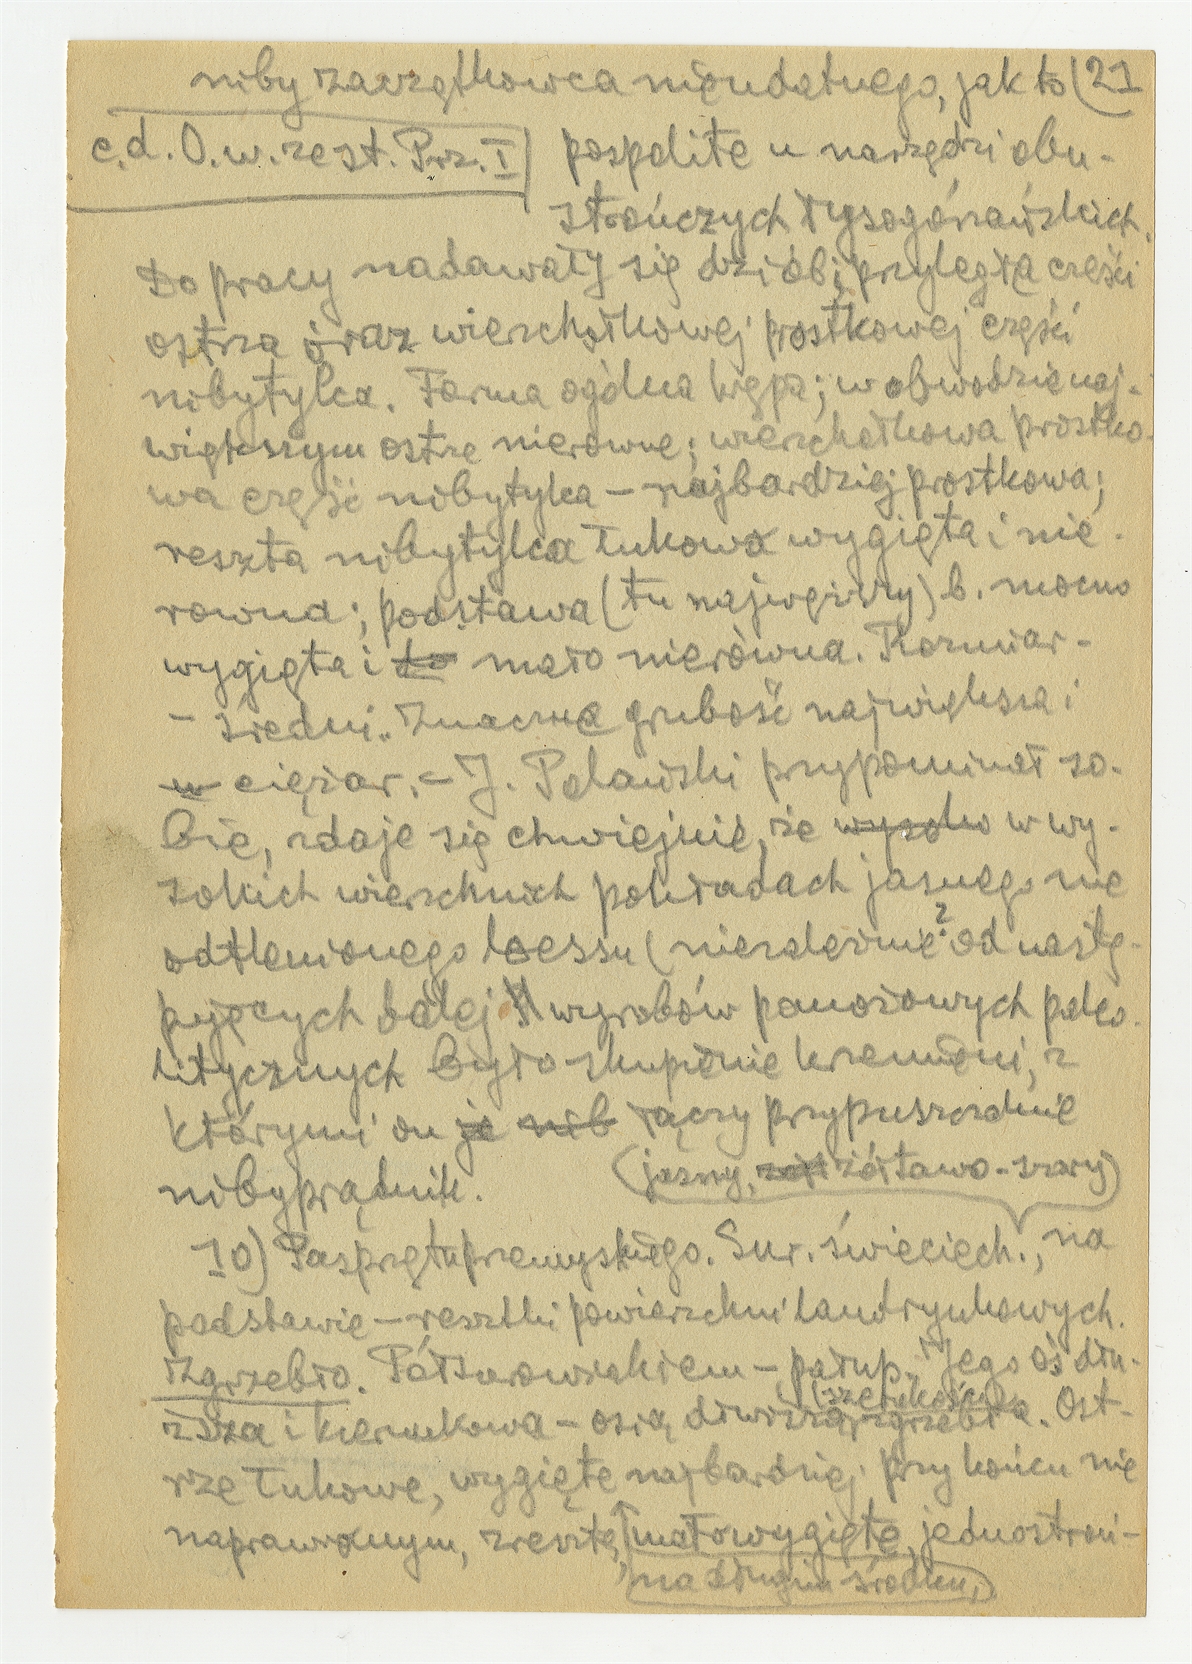 niby zaczątkowca nieudatnego, jak to (21
c.d. O. w. zest. Prz. I) pospolite u narzędzi obu-
strończych łysogórzańskich.
Do pracy nadawały się dziób i przyległa części
ostrza oraz wierzchołkowej prostkowej części
nibytylca. Forma ogólna krępa; w obwodzie naj-
większym ostrze nierówne; wierzchołkowa prostko-
wa część nibytylca – najbardziej prostkowa;
reszta nibytylca łukowa wygięta i nie-
równa; podstawa (tu najwęższy) b. mocno
wygięta i to mało nierówna. Rozmiar –
– średni. Znaczna grubość największa i
w ciężar. – J. Polański przypominał so-
bie, zdaje się chwiejnie, że wysoko w wy-
sokich wierzchnich pokładach jasnego nie
odtlenionego loessu (niezależnie? od nastę-
pujących dalej wyrobów panożowych paleo-
litycznych było skupienie krzemieni, z
którymi on je nib łączy przypuszczalnie
nibyprądnik. (jasny, żółtawo-szary)
10) Pasprzętu przemyskiego. Sur. świeciech., na
podstawie – resztki powierzchni landrynkowych.
Zgrzebło. Półsurowiakiem – połup. Jego oś dłu-
ższa i kierunkowa – osią (szerokości) zgrzebła. Ost-
rze łukowe, wygięte najbardziej przy końcu nie
naprawionym, zresztą małowygięte, jednostroń-
na środku,